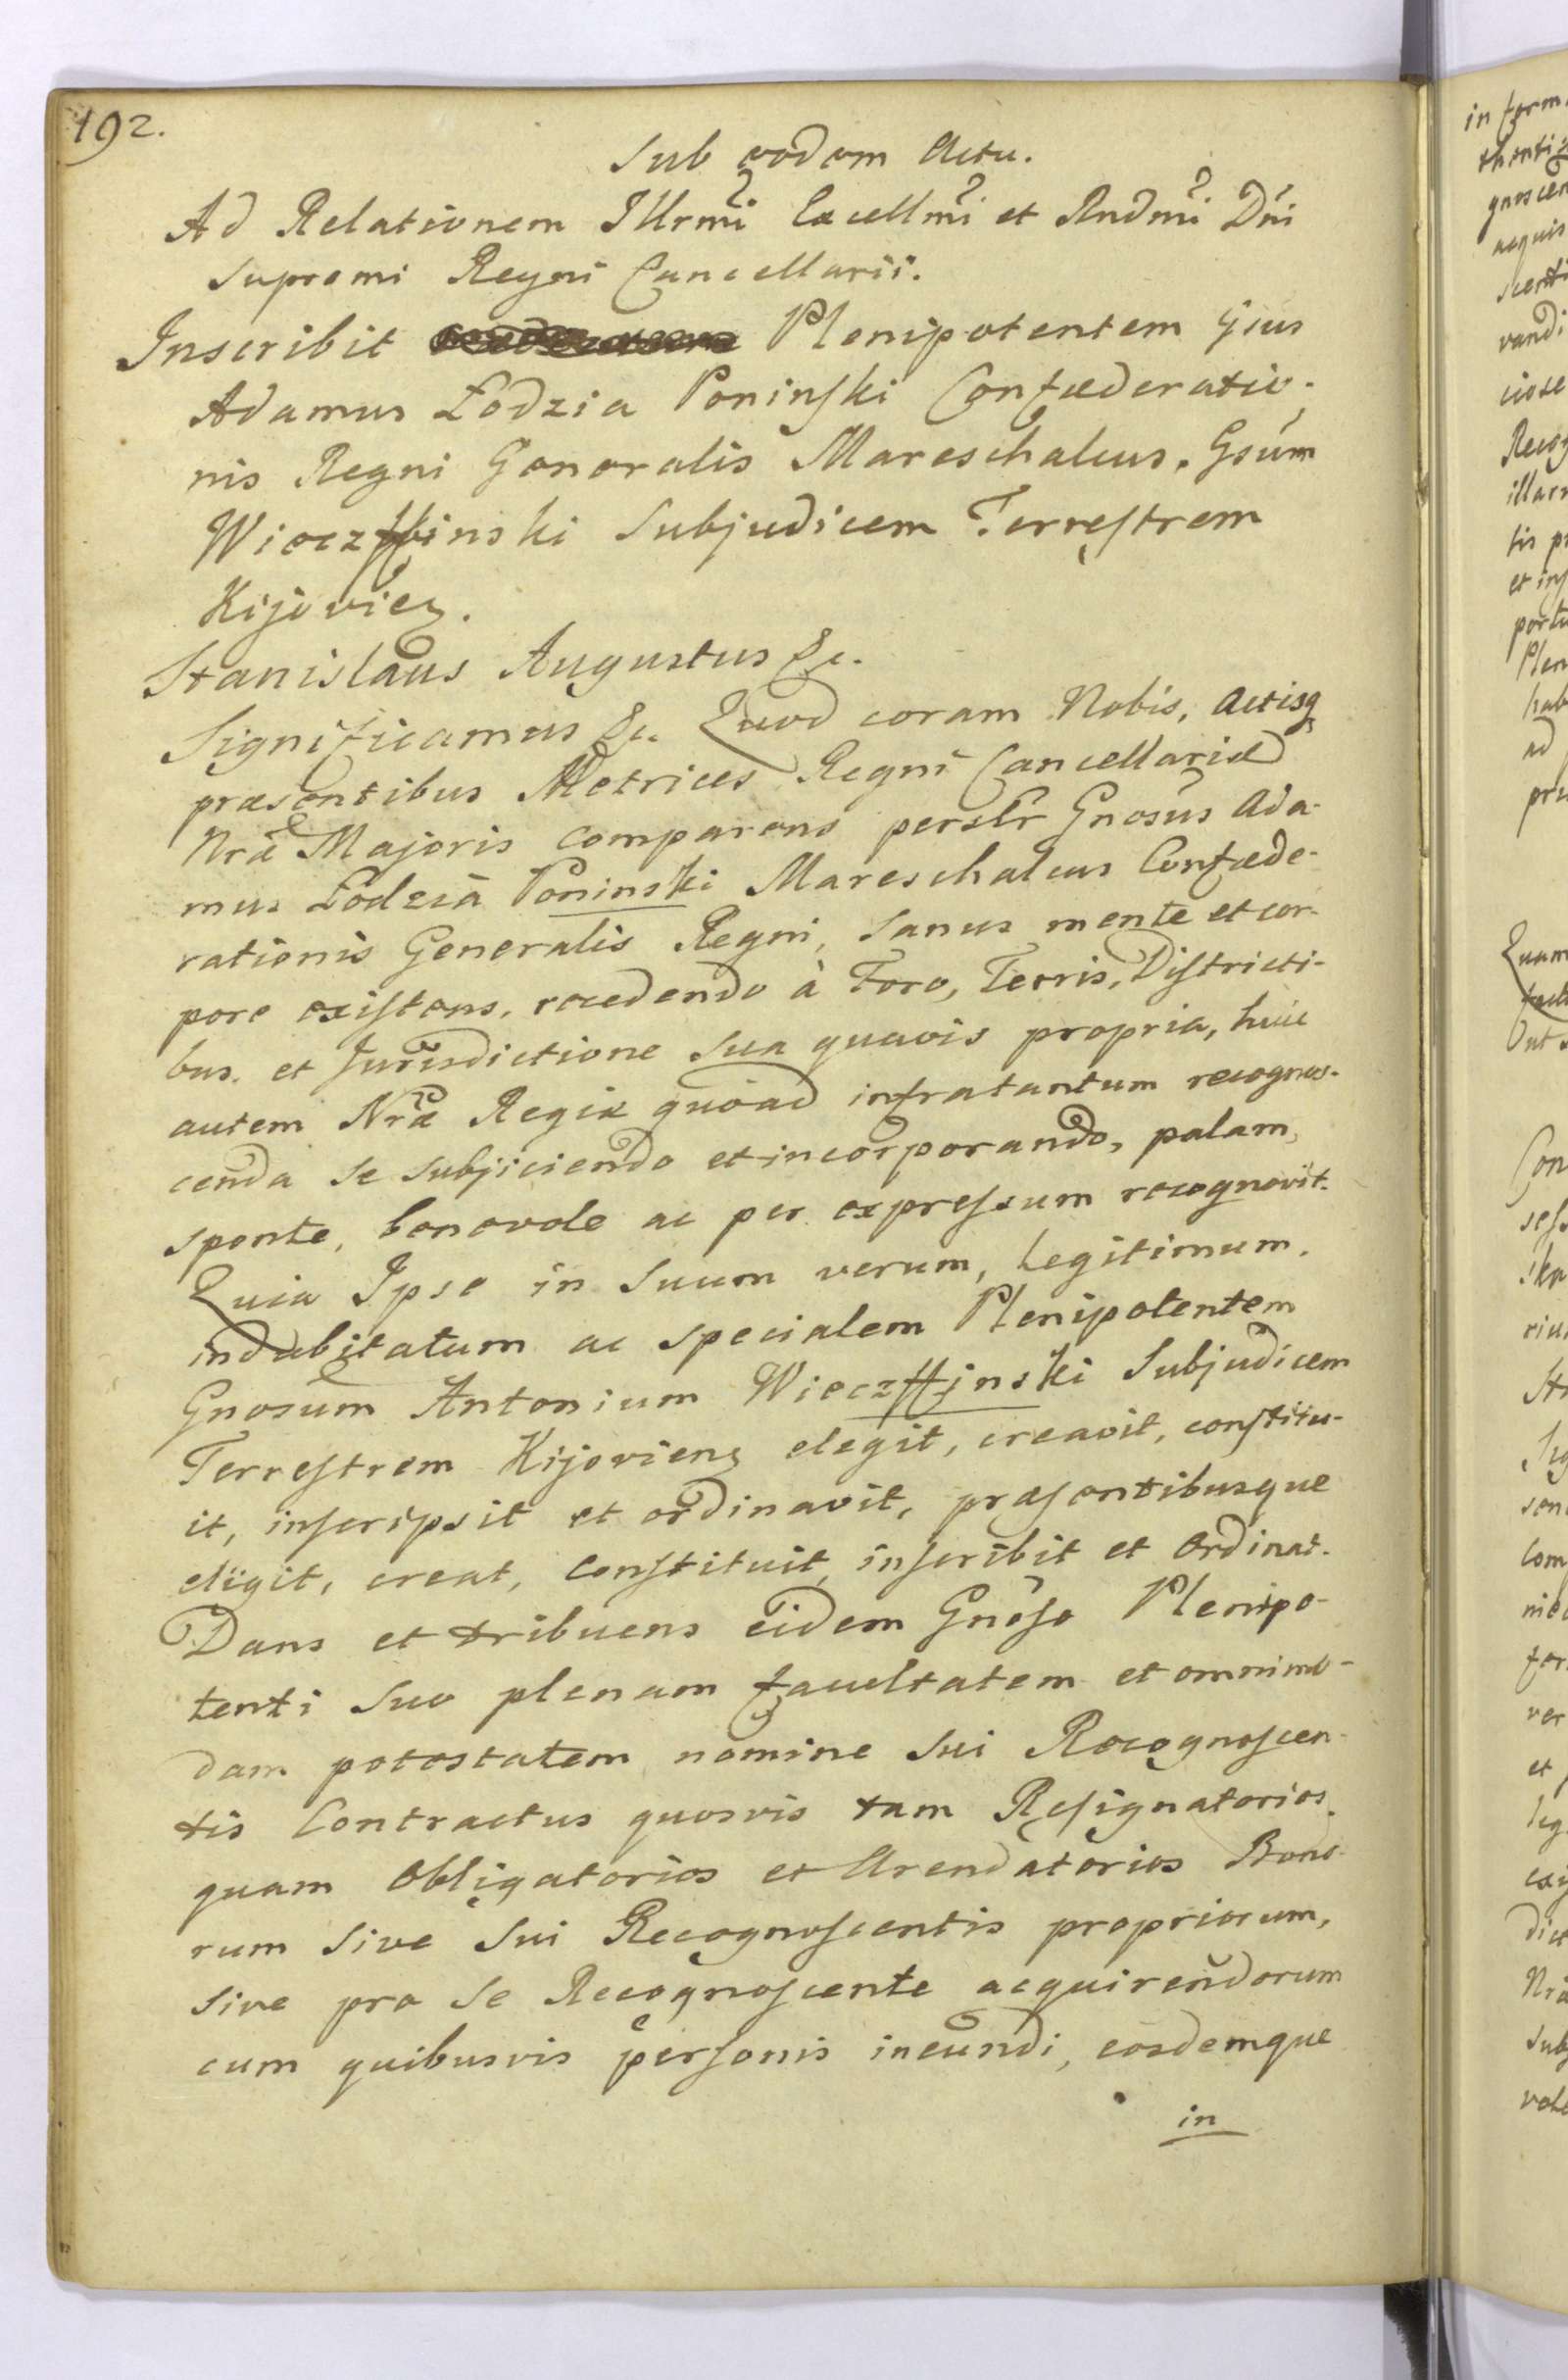 192.
Sub eodem Actu.
Ad Relationem Illrmi Excellmi et Rndmi Dni
Supremi Regni Cancellarii.
Inscribit Plenipotentem Gsus
Adamus Łodzia Poninski Confæderatio-
nis Regni Generalis Mareschalcus, Gsum
Wieczffinski Subjudicem Terrestrem
Kijoviens.
Stanislaus Augustus &c.
Significamus &c. Quod coram Nobis, Actisq
præsentibus Metrices Regni Cancellariæ
Nræ Majoris comparens persler Gnosus Ada-
mus Łodzia Poninski Mareschalcus Confæde-
rationis Generalis Regni, Sanus mente et cor-
pore existens, recedendo à Foro, Terris, Districti-
bus. et Jurisdictione Sua quavis propria, huic
autem Nræ Regiæ quoad infratantum recognos-
cenda se subjiciendo et incorporando, palam,
sponte, benevole ac per expressum recognovit.
Quia Ipse in Suum verum, legitimum,
indubitatum ac specialem Plenipotentem
Gnosum Antonium Wieczffinski Subjudicem
Terrestrem Kijoviens elegit, creavit, constitu-
it, inscripsit et ordinavit, præsentibusque
eligit, creat, constituit, inscribit et Ordinat.
Dans et tribuens eidem Gnoso Plenipo-
tenti Suo plenam facultatem et omnimo-
dam potestatem nomine Sui Recognoscen-
tis Contractus quosvis tam Resignatorios
quam Obligatorios et Arendatorios Bono-
rum Sive Sui Recognoscentis propriorum,
Sive pro Se Recognoscente acquirendorum
cum quibusvis personis ineundi, eosdemque
in